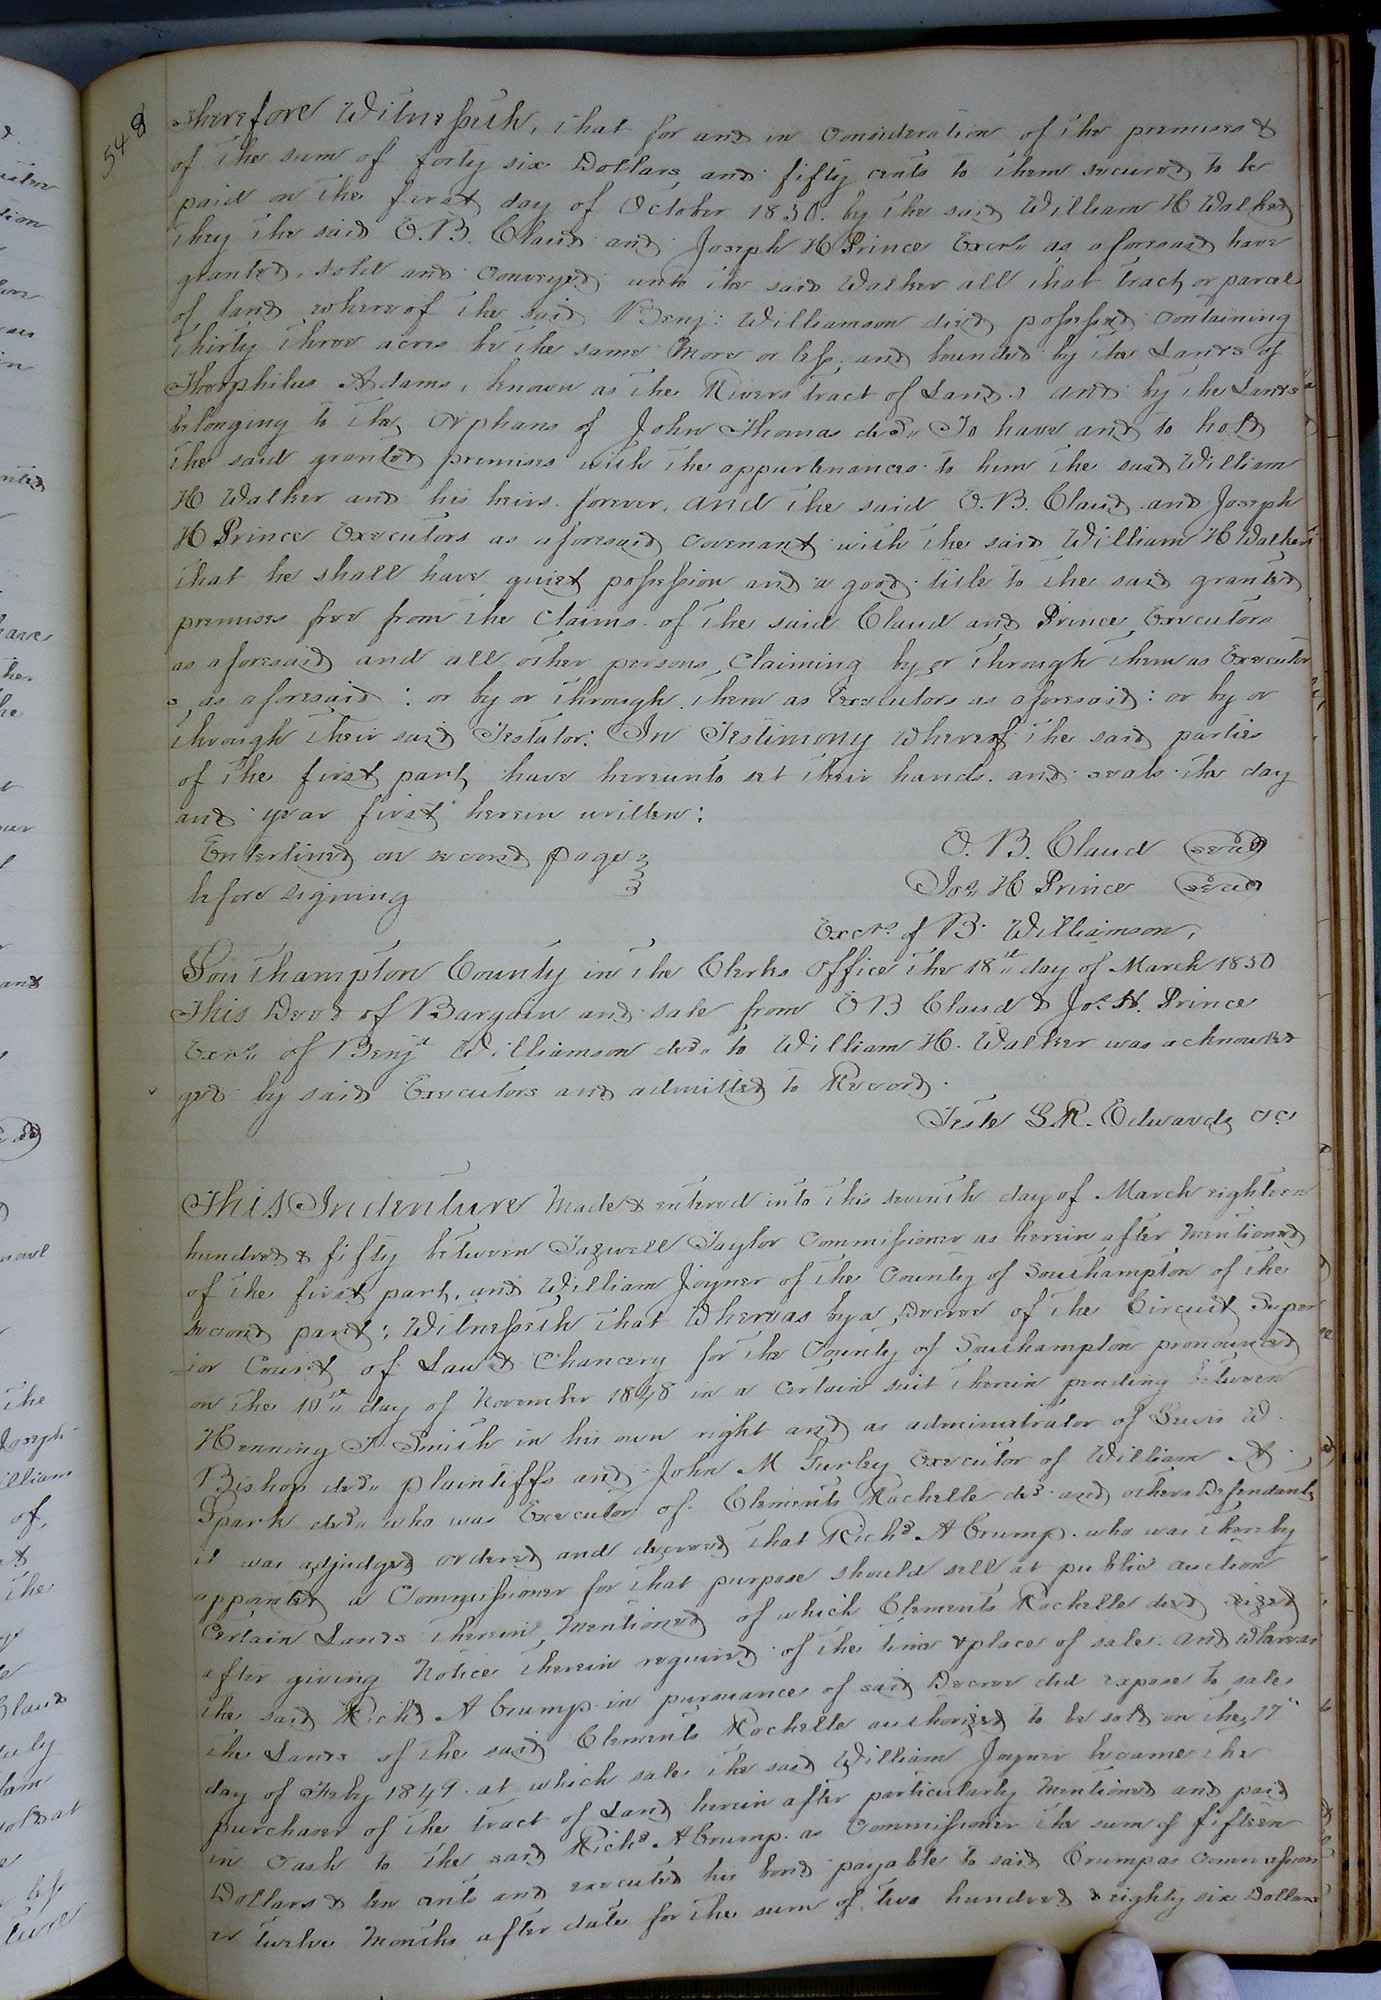 548
Therefore Witnesseth, that for and in Consideration of the premises &
of the sum of forty six Dollars, and fifty cents to them secured to be
paid on the first day of October 1850. by the said William H Walker
they the said E.B. Claud and Joseph H Prince Exers as aforesaid have
granted, sold and Conveyed unto the said Walker all that tract or parcel
of land whereof the said Benj: Williamson died possessed Containing
thirty three acres be the same more or less, and bounded by the Lands of
Theophilus Adams, known as the Rivers tract of Land, and by the Lands
belonging to the Orphans of John Thomas decd. To have and to hold
the said granted premises with the appurtenances to him the said William
H Walker and his heirs forever, and the said E.B. Claud and Joseph
H Prince Executors as aforesaid Covenant with the said William H Walker
that he shall have quiet possession and a good title to the said granted
premises free from the Claims of the said Claud and Prince Executors
as aforesaid and all other persons Claiming by or through them as Executor
s, as aforesaid : or by or through them as Executors as aforesaid: or by or
through their said Testator: In Testimony whereof the said parties
of the first part, have hereunto set their hands and seals the day
and year first herein written:
Enterlined on second page
before signing
E. B. Claud (seal)
Jos. H Prince (seal)
Exers. of B. Williamson,
Southampton County in the Clerks Office the 18th day of March 1850
This Deed of Bargain and sale from E B Claud & Jos. H. Prince
Exers. of Benja Williamson decd. to William H. Walker was acknowled
ged by said Executors and admitted to Record.
Teste L.R. Edwards CC
This Indenture Made & entered into this seventh day of March eighteen
hundred & fifty between Tazwell Taylor Commissioner as herein after mentioned
of the first part, and William Joyner of the County of Southampton of the
second part: Witnesseth that Whereas by a Decree of the Circuit Super
ior Court of Law & Chancery for the County of Southampton pronounced
on the 10th day of November 1848 in a certain suit therein pending between
Henning T Smith in his own right and as administrator of Lewis W.
Bishop decd. plaintiffs and John M Gurley Executor of William A
Spark decd. who was Executor of Clements Rochelle decd. and others Defendants
it was adjudged ordered and decreed that Richd A Crump who was thereby
appointed a Commissioner for that purpose should sell at public auction
Certain Lands therein Mentioned of which Clements Rochelle died seized
after giving Notice therein required of the time & place of sale. and Whereas
the said Richd A Crump in pursuance of said Decree did expose to sale
the Lands of the said Clements Rochelle authorized to be sold on the 17"
day of Feby 1849. at which sale the said William Joyner became the
purchaser of the tract of Land herein after particularly Mentioned and paid
in Cash to the said Richd. A Crump as Commissioner the sum of fifteen
Dollars & ten cents and executed his bond payable to said Crump as Commission
er twelve Months after date for the sum of two hundred & eighty six Dollars